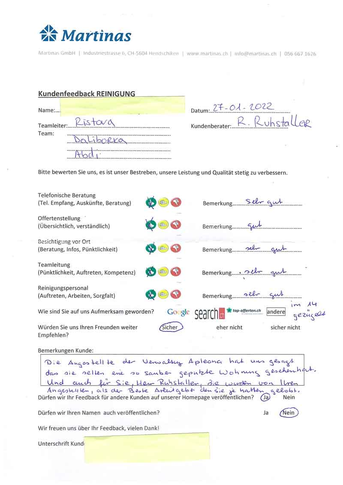 Martinas
Martinas GmbH | Industriestrasse 6, CH-5604 Hendschiken | www.martinas.ch | info@martinas.ch |
Kundenfeedback REINIGUNG
Name:
Datum: 27-01-2022
Teamleiter: Ristova
Kundenberater: R. Ruhstaller
Team:
Daliborka
Abdi
Bitte bewerten Sie uns, es ist unser Bestreben, unsere Leistung und Qualität stetig zu verbessern.
Telefonische Beratung
(Tel. Empfang, Auskünfte, Beratung) Bemerkung sehr gut
Offertenstellung
(Übersichtlich, verständlich) Bemerkung gut
Besichtigung vor Ort
(Beratung, Infos, Pünktlichkeit) Bemerkung sehr gut
Teamleitung
(Pünktlichkeit, Auftreten, Kompetenz) Bemerkung sehr gut
Reinigungspersonal
(Auftreten, Arbeiten, Sorgfalt) Bemerkung sehr gut
Wie sind Sie auf uns Aufmerksam geworden? Google search top-offerten.ch andere
Würden Sie uns Ihren Freunden weiter sicher eher nicht sicher nicht
Empfehlen?
Bemerkungen Kunde:
Die Angestellte der Verwaltung Apleona hat uns gesagt
das sie selten eine so sauber geputzte Wohnung
Und auch für Sie, Herr Ruhstaller, sie wurden von Ihren
Angestellten, als der Beste Arbeitgeber den sie je hatten gelobt.
Dürfen wir Ihr Feedback für andere Kunden auf unserer Homepage veröffentlichen? Ja Nein
Dürfen wir Ihren Namen auch veröffentlichen? Ja Nein
Wir freuen uns über Ihr Feedback, vielen Dank!
Unterschrift Kund